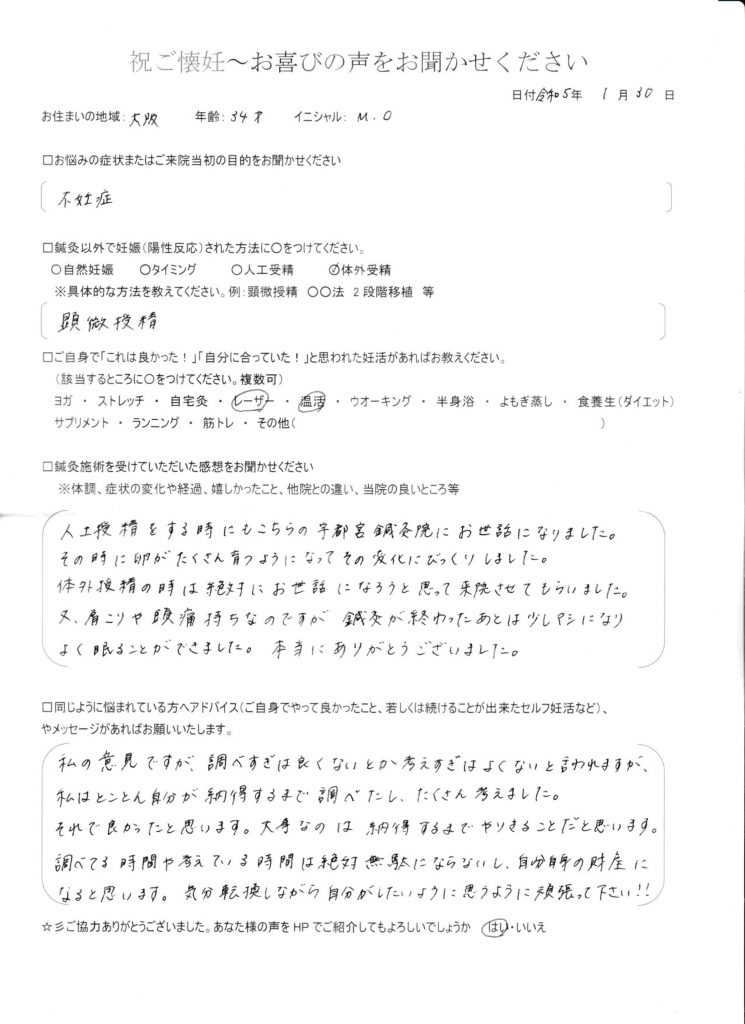 祝ご懐妊～お喜びの声をお聞かせください
日付 令和5年 1月 30日
お住まいの地域: 大阪 年齢: 34才 イニシャル: M.O
□お悩みの症状またはご来院当初の目的をお聞かせください
不妊症
□鍼灸以外で妊娠(陽性反応)された方法に〇をつけてください。
〇自然妊娠 〇タイミング 〇人工受精 〇体外受精
※具体的な方法を教えてください。例:顕微授精 〇〇法 2段階移植 等
顕微授精
□ご自身で「これは良かった!」「自分に合っていた!」と思われた妊活があればお教えください。
(該当するところに〇をつけてください。複数可)
ヨガ ・ ストレッチ ・ 自宅灸 ・ レーザー ・ 温活 ・ ウオーキング ・ 半身浴 ・ よもぎ蒸し ・ 食養生(ダイエット)
サプリメント ・ ランニング ・ 筋トレ ・ その他( )
□鍼灸施術を受けていただいた感想をお聞かせください
※体調、症状の変化や経過、嬉しかったこと、他院との違い、当院の良いところ等
人工授精をする時にもこちらの宇都宮鍼灸院にお世話になりました。
その時に卵がたくさん育つようになってその変化にびっくりしました。
体外授精の時は絶対にお世話になろうと思って来院させてもらいました。
又、肩こりや頭痛持ちなのですが 鍼灸が終わったあとは少しマシになり
よく眠ることができました。本当にありがとうございました。
□同じように悩まれている方へアドバイス(ご自身でやって良かったこと、若しくは続けることが出来たセルフ妊活など)、
やメッセージがあればお願いいたします。
私の意見ですが、調べすぎは良くないとか考えすぎはよくないと言われますが、
私はとことん自分が納得するまで調べたし、たくさん考えました。
それで良かったと思います。大事なのは 納得するまでやりきることだと思います。
調べてる時間や考えている時間は絶対無駄にならないし、自分自身の財産に
なると思います。気分転換しながら自分がしたいように思うように頑張って下さい!!
☆彡ご協力ありがとうございました。あなた様の声をHPでご紹介してもよろしいでしょうか はい・いいえ